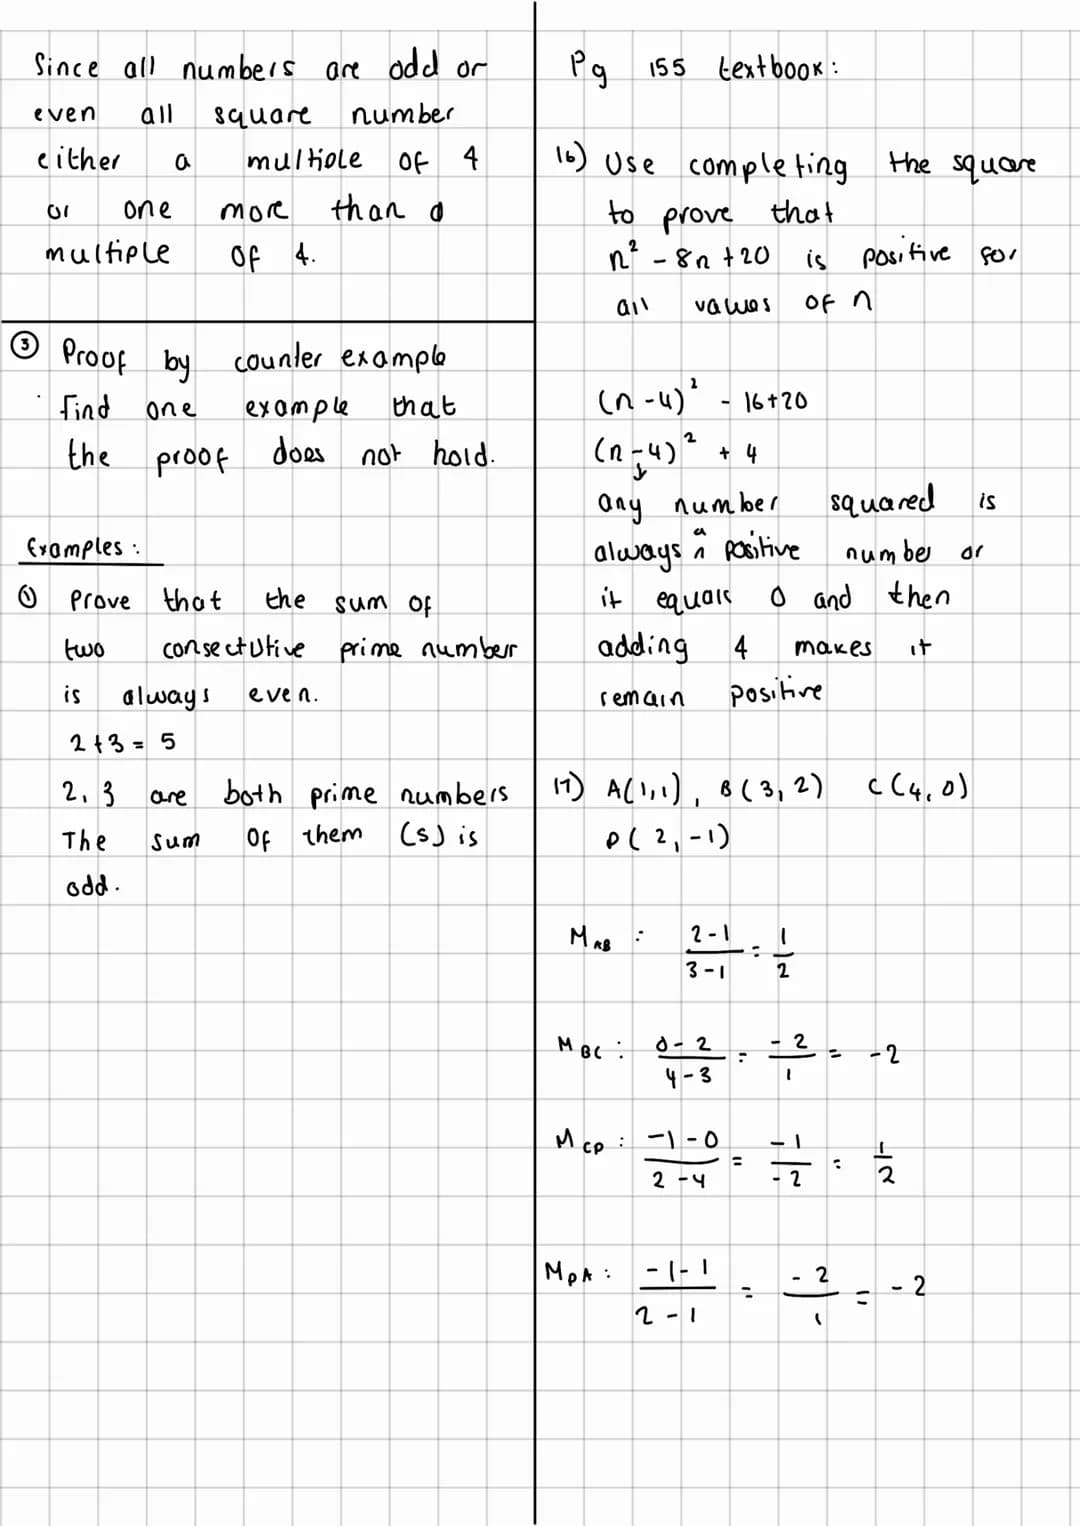 Since all numbers are odd or
even all square number
either a multiple of 4
or one more than a
multiple of 4.
③ Proof by counter example
· find one example that
the proof does not hold.
Examples :
① Prove that the sum of
two consectutive prime numbers
is always even.
2+3 = 5
2, 3 are both prime numbers
The sum of them (5) is
odd.
Pg 155 textbook :
16) Use completing the square
to prove that
n² - 8n + 20 is positive for
all values of n
(n-4)² - 16+20
(n-4)² + 4
any number squared is
always a positive number or
it equals 0 and then
adding 4 makes it
remain positive
17) A(1,1), B(3,2) C(4,0)
D(2,-1)
M AB : 2-1/3-1 = 1/2
M BC : 0-2/4-3 = -2/1 = -2
M CD : -1-0/2-4 = -1/-2 = 1/2
M DA : -1-1/2-1 = -2/1 = -2